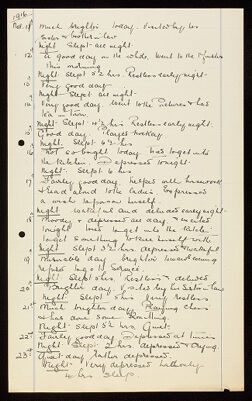 1916
Nov. 11th Much brighter today. Visited by his
sister & brother in law
Night Slept all night
12 A good day on the whole. Went to the
this morning
Night Slept 5½ hrs. Restless early night
13 Very good day
Night Slept all night.
14 Very good day. Went to the Pictures & had
tea in Town
Night. Slept 4½ hrs Restless early night.
15 Good day. Played hockey
Night. Slept 6½ hrs
16 Not so bright today. Was to get into
the Kitchen. Depressed tonight.
Night. Slept 6 hrs
17 Fairly good day. Helped with housework
& read aloud to the ladies. Expressed
a wish to himself.
Night wakeful and delusive early night.
18 Moody & depressed all day & wanted
tonight to get into the kitchen
to get something to himself with
Night Slept 3½ hrs. depressed & wakeful
19 Miserable day brighter toward evening
Refused to go to service.
Night Slept 6 hrs. Restless & deluded
20 Brighter day. Visited by his sister in law
Night. Slept 5 hrs Very restless
21st Much brighter day. Playing chess
& has done some
Night Slept 5½ hrs. Quiet.
22nd Fairly good day. Depressed at times
Night. Slept 2 hrs. depressed & crying.
23rd Quiet day. Rather depressed.
Night Very depressed
4 hrs sleep.